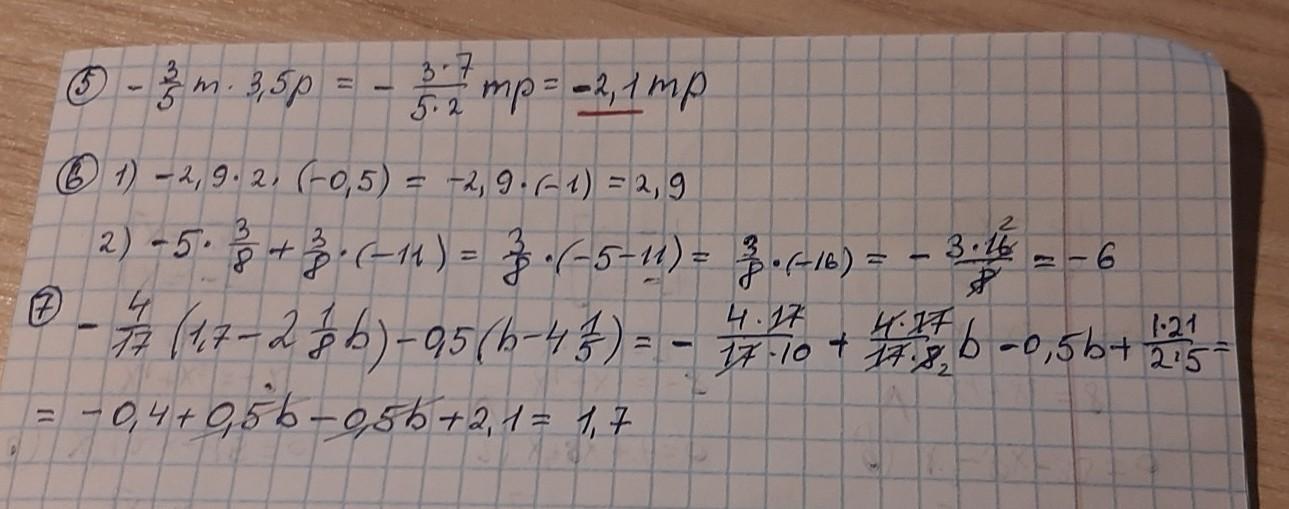 ⑤ - 3/5 m · 3,5p = - 3·7/5·2 mp = -2,1 mp
⑥ 1) -2,9·2·(-0,5) = -2,9·(-1) = 2,9
2) -5· 3/8 + 3/8 ·(-11) = 3/8 ·(-5-11) = 3/8 ·(-16) = - 3·16 2/8 = -6
⑦ - 4/17 (1,7 - 2 1/8 b) - 0,5(b - 4 1/5) = - 4·17/17·10 + 4·17/17·8 2 b - 0,5b + 1·21/2·5 =
= -0,4 + 0,5b - 0,5b + 2,1 = 1,7